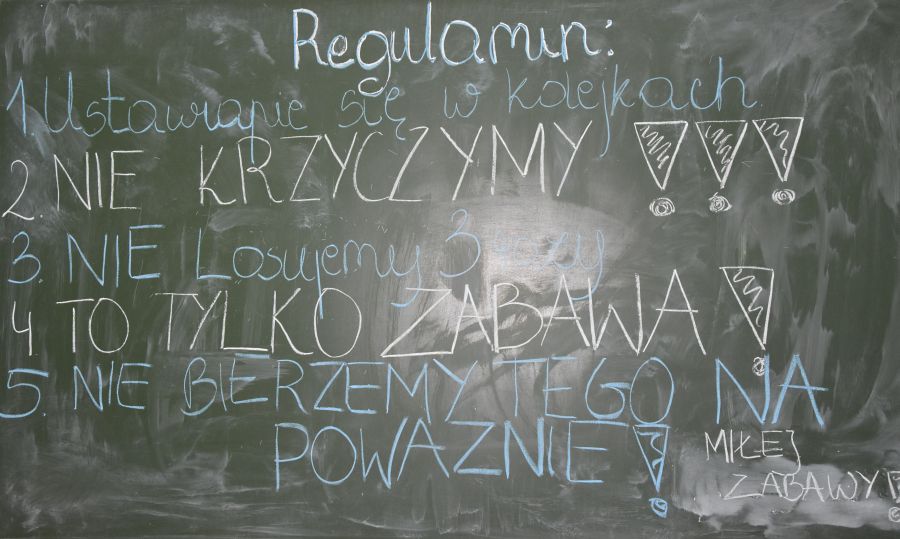 Regulamin:
1. Ustawiajcie się w kolejkach
2. NIE KRZYCZYMY !!!
3. NIE Losujemy 3 razy
4 TO TYLKO ZABAWA !
5. NIE BIERZEMY TEGO NA
POWAZNIE !
MIŁEJ
ZABAWY !